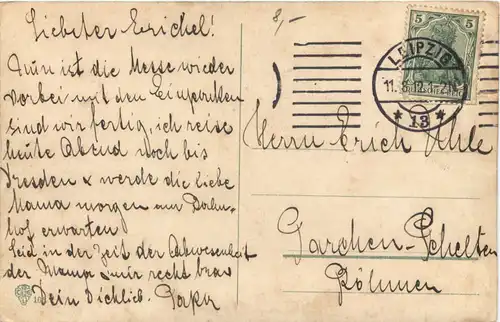 Liebster Erichel!
8,-
Nun ist die Messe wieder
vorbei mit den Einpacken
sind wir fertig, ich reise
heute Abend noch bis
Dresden & werde die liebe
Mama morgen am Bahn-
hof erwarten
Seid in der Zeit der Abwesenheit
der Mama & mir recht brav
Dein Dichlieb. Papa
5 5
LEIPZIG
11.8.12.
* 13 *
Herrn Erich Uhle
Garchen-Schelten
Böhmen